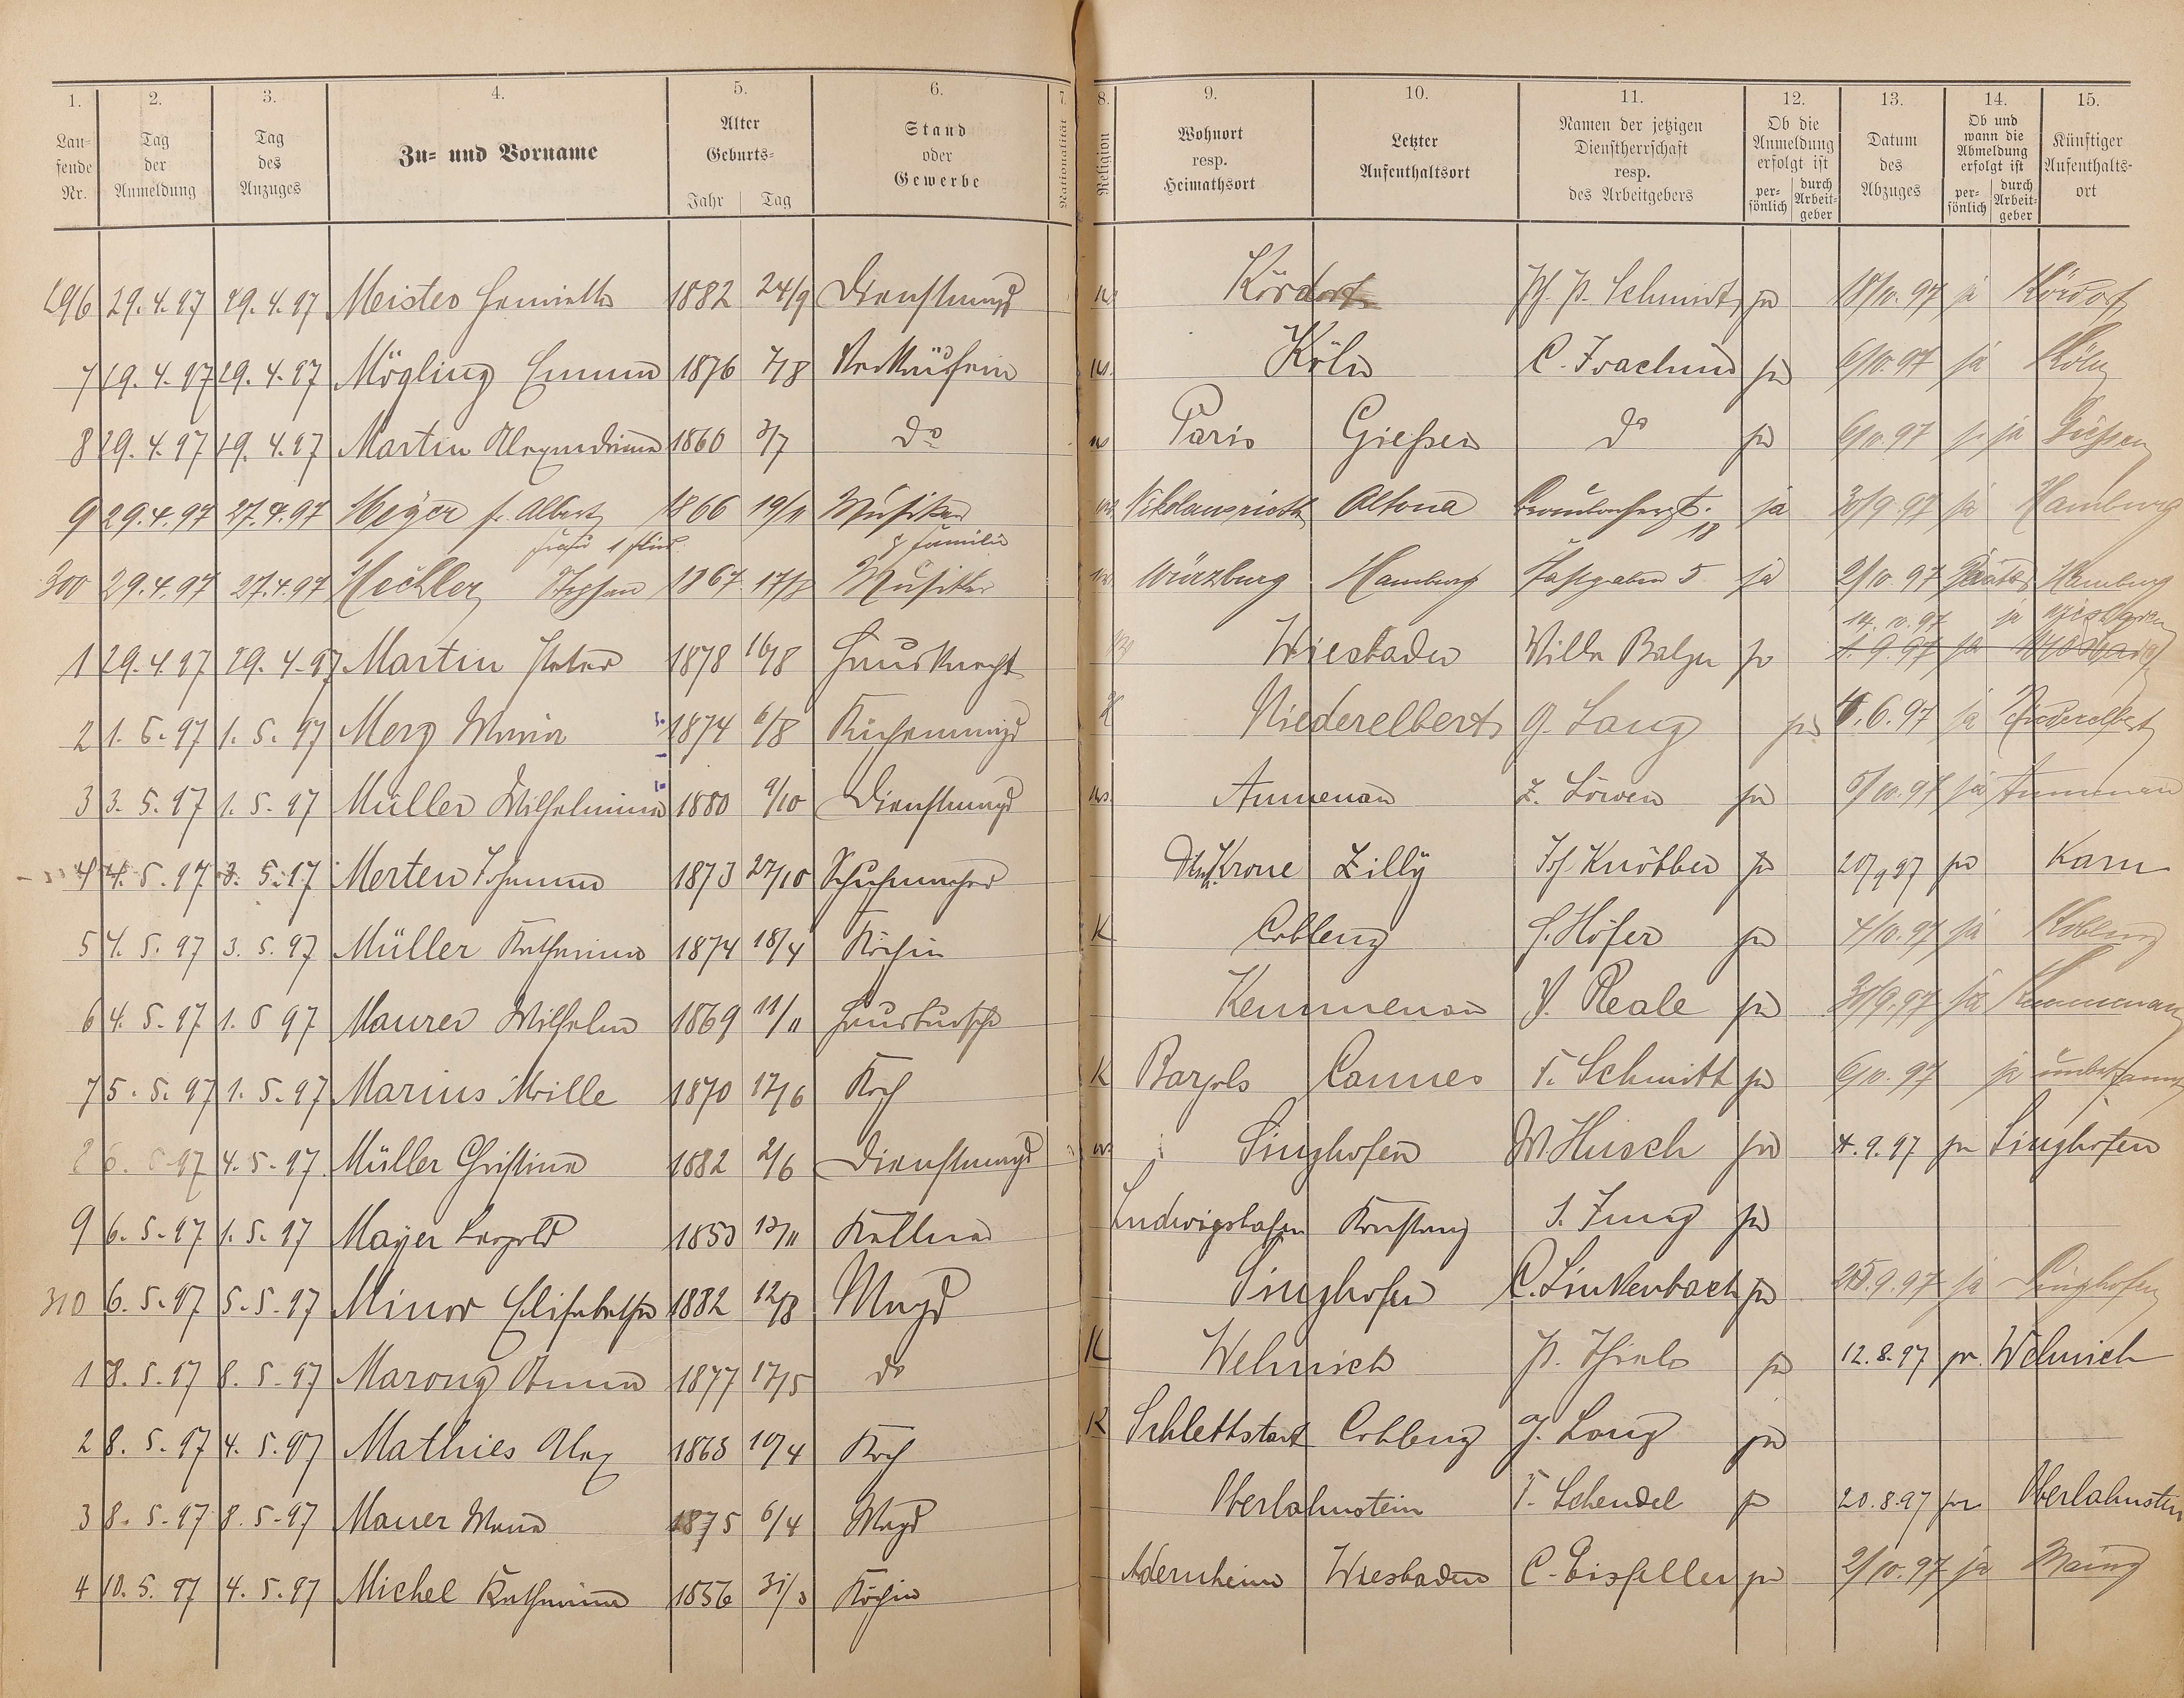 1. 2. 3. 4. 5. 6. 7. 8. 9. 10. 11. 12. 13. 14. 15.
Lau-
fende
Nr.
Tag
der
Anmeldung
Tag
des
Anzuges
Zu- und Vorname
Alter
Geburts-
Jahr Tag
Stand
oder
Gewerbe
Nationalität
Religion
Wohnort
resp.
Heimathsort
Letzter
Aufenthaltsort
Namen der jetzigen
Dienstherrschaft
resp.
des Arbeitgebers
Ob die
Anmeldung
erfolgt ist
per-
sönlich
durch
Arbeit-
geber
Datum
des
Abzuges
Ob und
wann die
Abmeldung
erfolgt ist
per-
sönlich
durch
Arbeit-
geber
Künftiger
Aufenthalts-
ort
296 29.4.97 29.4.97 Meister Henriette 1882 24/9 Dienstmagd Kördorf Ph. P. Schmidt ja 18/10.97 ja Kördorf
7 29.4.97 29.4.97 Mögling Emma 1876 7/8 Verkäuferin Köln C. Joachim ja 6/10.97 ja Köln
8 29.4.97 29.4.97 Martin Alexandrine 1860 3/7 do Paris Gießen do ja 6/10.97 ja Gießen
9 29.4.97 27.4.97 Meyer Albert 1866 19/11 Musiker Altona 18 ja 30/9.97 ja Hamburg
Frau 1 Kind Familie
300 29.4.97 27.4.97 Mechler Stephan 1867 17/8 Musiker Würzburg Hamburg 5 ja 2/10.97 Hamburg
14.10.97 ja Wiesbaden
1 29.4.97 29.4.97 Martin Peter 1878 16/8 Hausknecht Wiesbaden Villa Balzer ja 1.9.97 ja Wiesbaden
2 1.5.97 1.5.97 Merz Maria 1874 6/8 Küchenmagd K Niederelbert G. Lang ja 4.6.97 ja Niederelbert
3 3.5.97 1.5.97 Müller Wilhelmine 1880 9/10 Dienstmagd Aumenau Z. Löwen ja 5/10.97 ja Aumenau
4 4.5.97 3.5.97 Merten Johann 1873 27/10 Schuhmacher Dtsch. Krone Zilly Jos. Knöbber ja 20/9 97 ja
5 4.5.97 3.5.97 Müller Katharina 1874 18/4 Köchin K Coblenz H. Höfer ja 4/10.97 ja Koblenz
6 4.5.97 1.5 97 Maurer Wilhelm 1869 11/11 Hausbursche Kemmenau V. Reale ja 30/9.97 ja Kemmenau
7 5.5.97 1.5.97 Marius Mille 1870 17/6 Koch K Barjols Cannes F. Schmitt ja 6/10.97 ja unbekannt
8 6.5.97 4.5.97 Müller Christina 1882 2/6 Dienstmagd Singhofen W. Husch ja 4.9.97 ja Singhofen
9 6.5.97 1.5.97 Mayer Leopold 1853 13/11 Kellner Ludwigshafen Konstanz S. Jung ja
310 6.5.97 5.5.97 Minor Elisabetha 1882 12/8 Magd Singhofen C. Linkenbach ja 25.9.97 ja Singhofen
1 8.5.97 8.5.97 Marong Anna 1877 17/5 do K Welmich P. Thiels ja 12.8.97 ja Welmich
2 8.5.97 4.5.97 Mathies Alex 1863 10/4 Koch K Schlettstadt Coblenz G. Lang ja
3 8.5.97 8.5.97 Mauer Maria 1875 6/4 Magd Oberlahnstein F. Schendel ja 20.8.97 ja Oberlahnstein
4 10.5.97 4.5.97 Michel Katharina 1856 31/3 Köchin Adernheim Wiesbaden C. Eisfeller ja 2/10.97 ja Mainz